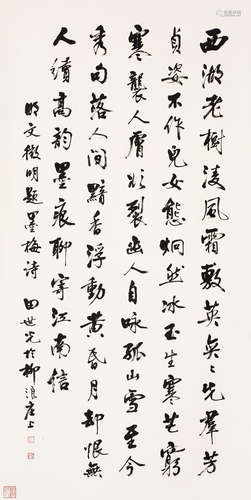 西湖老樹凌風霜敷英奕〻先群芳
貞姿不作兒女態炯然冰玉生寒芒窮
寒襲人膚欲裂幽人自咏孤山雪至今
秀句落人間黯香浮動黃昏月却恨無
人續高韵墨痕聊寄江南信
明文徵明題墨梅詩 田世光於柳浪庄上